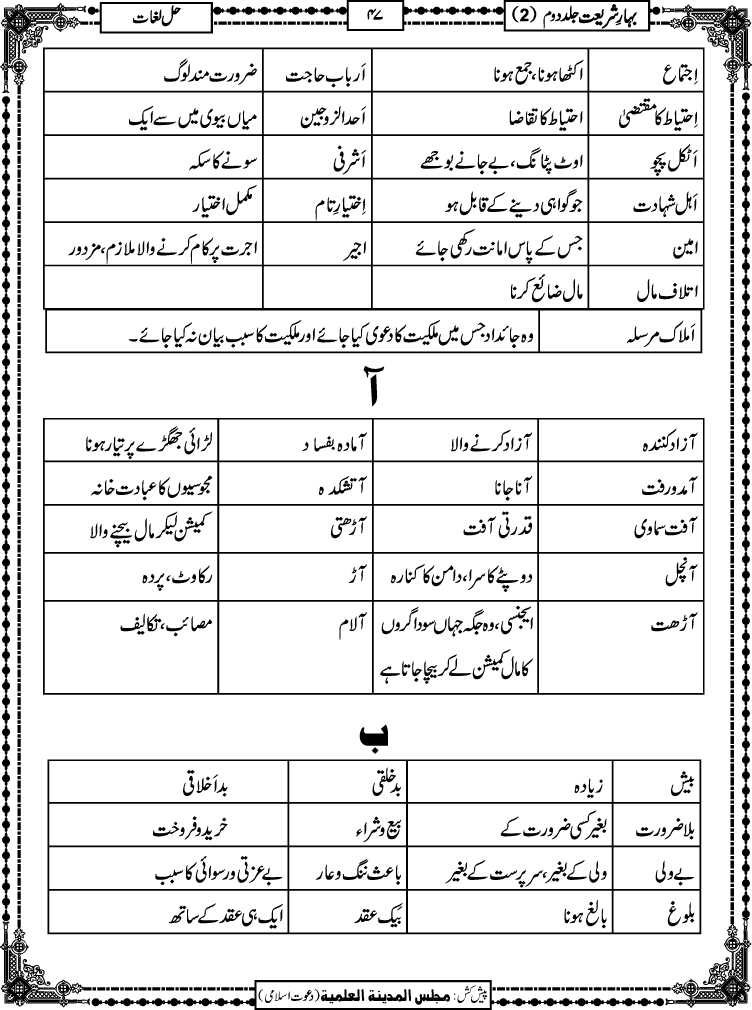 بہارِ شریعت جلد دوم (2) ۴۷ حل لغات
اِجتماع اکٹھا ہونا، جمع ہونا اَرباب حاجت ضرورت مند لوگ
اِحتیاط کا مقتضیٰ احتیاط کا تقاضا اَحد الزوجین میاں بیوی میں سے ایک
اَٹکل پچو اوٹ پٹانگ، بے جانے بوجھے اَشرفی سونے کا سکہ
اَہل شہادت جو گواہی دینے کے قابل ہو اِختیارِ تام مکمل اختیار
امین جس کے پاس امانت رکھی جائے اجیر اجرت پر کام کرنے والا ملازم، مزدور
اتلاف مال مال ضائع کرنا
اَملاک مرسلہ وہ جائداد جس میں ملکیت کا دعوی کیا جائے اور ملکیت کا سبب بیان نہ کیا جائے۔
آ
آزاد کنندہ آزاد کرنے والا آمادہ بفساد لڑائی جھگڑے پر تیار ہونا
آمدورفت آنا جانا آتشکدہ مجوسیوں کا عبادت خانہ
آفت سماوی قدرتی آفت آڑھتی کمیشن لیکر مال بیچنے والا
آنچل دوپٹے کا سرا، دامن کا کنارہ آڑ رکاوٹ، پردہ
آڑھت ایجنسی، وہ جگہ جہاں سوداگروں آلام مصائب، تکالیف
کا مال کمیشن لے کر بیچا جاتا ہے
ب
بیش زیادہ بدخلقی بداَخلاقی
بلاضرورت بغیر کسی ضرورت کے بیع وشراء خرید و فروخت
بے ولی ولی کے بغیر، سرپرست کے بغیر باعث ننگ و عار بے عزتی و رسوائی کا سبب
بلوغ بالغ ہونا بَیک عقد ایک ہی عقد کے ساتھ
پیش کش: مجلس المدینة العلمیة (دعوت اسلامی)